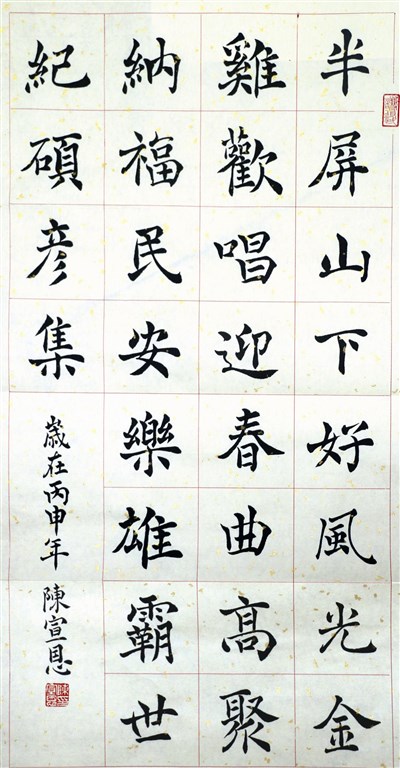 半屏山下好風光金
雞歡唱迎春曲高聚
納福民安樂雄霸世
紀碩彥集
歲在丙申年 陳宣恩